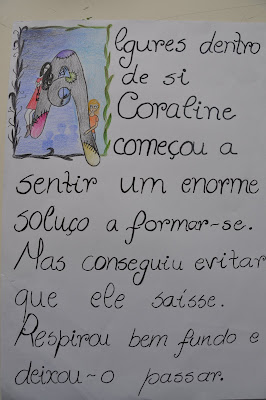 Algures dentro
de si
Coraline
começou a
sentir um enorme
soluço a formar-se.
Mas conseguiu evitar
que ele saísse.
Respirou bem fundo e
deixou-o passar.